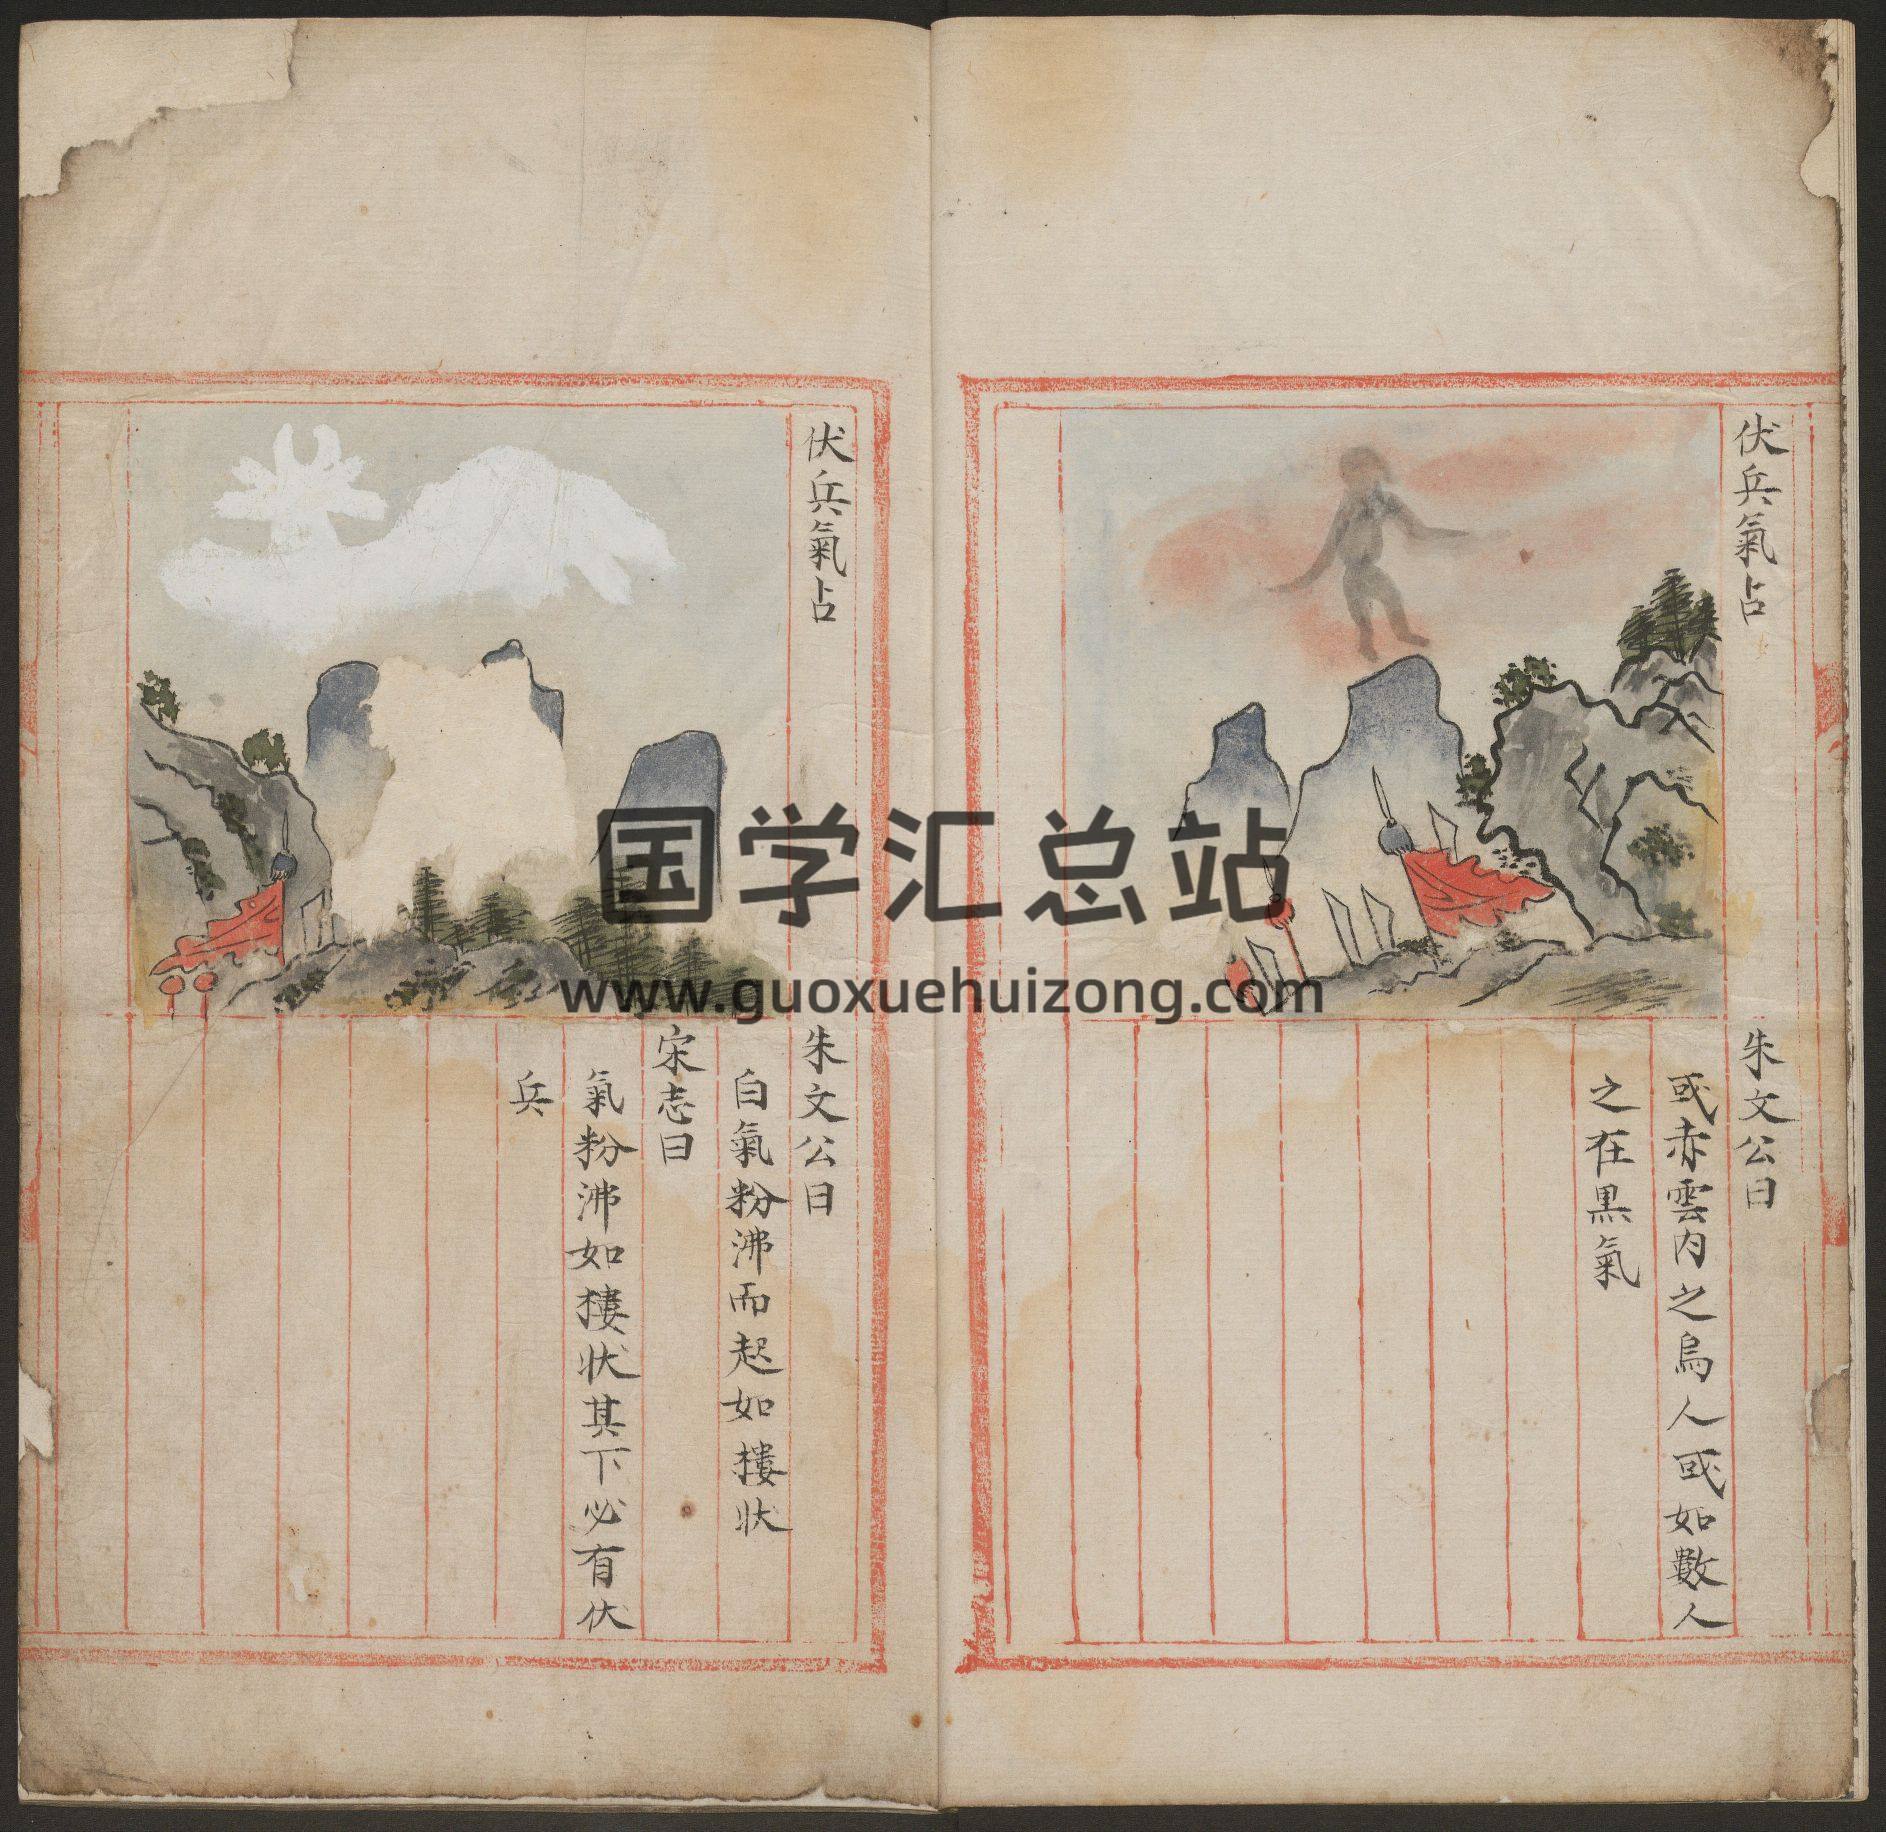 伏兵氣占
朱文公曰
或赤雲內之烏人或如數人
之在黒氣
伏兵氣占
朱文公曰
白氣粉沸而起如樓状
宋志曰
氣粉沸如樓状其下必有伏
兵
国学汇总站
www.guoxuehuizong.com